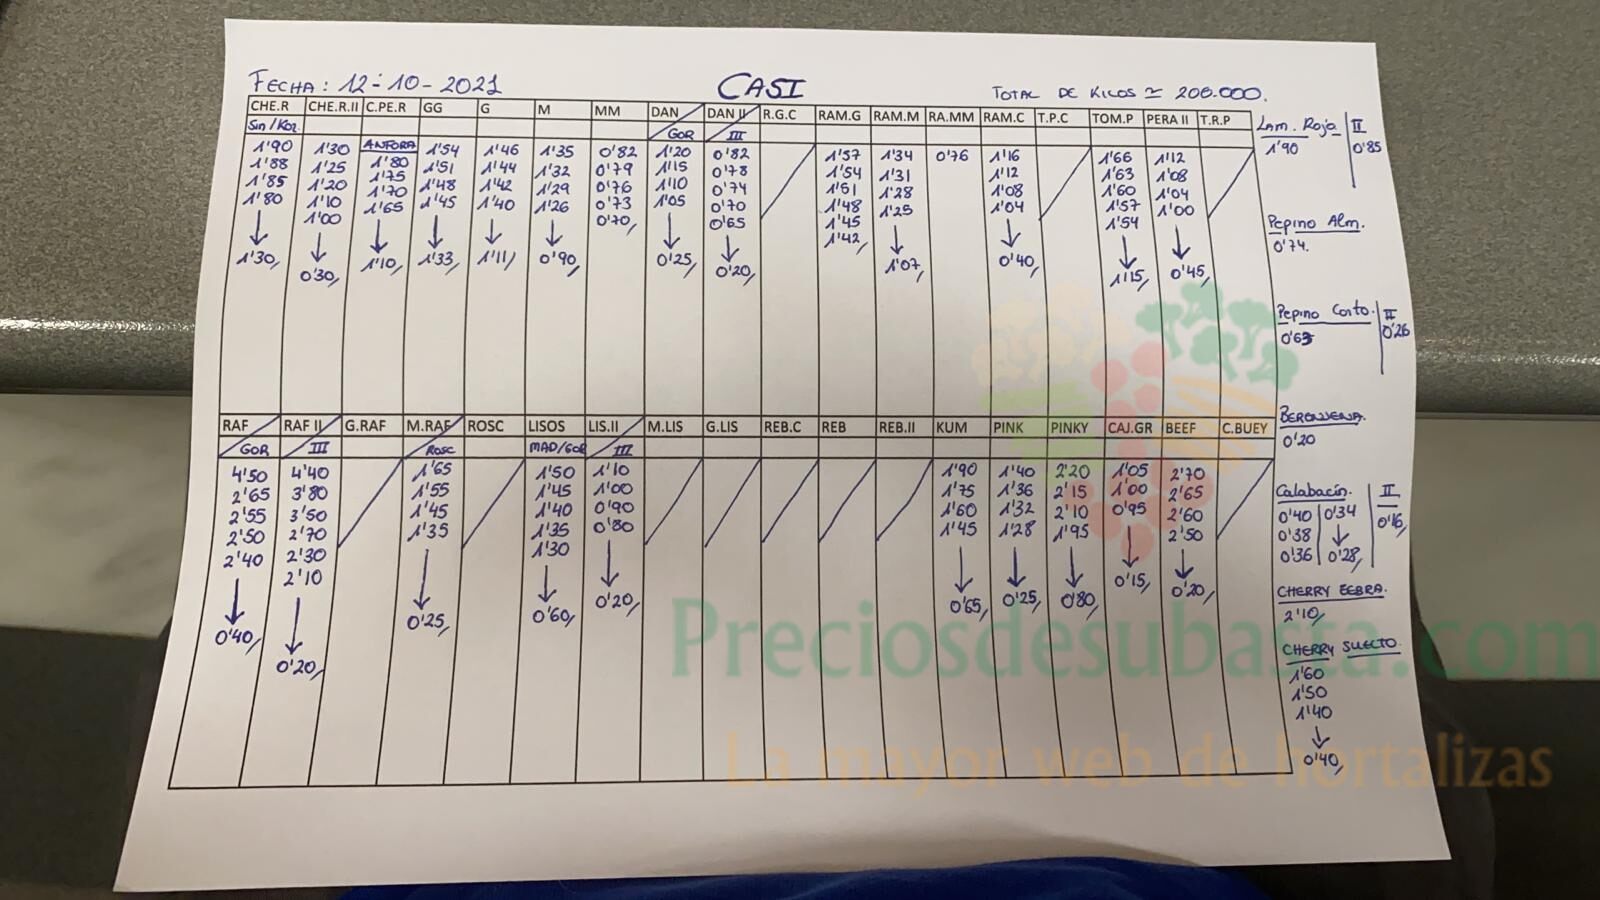 FECHA: 12-10-2021 CASI TOTAL DE KILOS ≃ 200.000.
CHE.R CHE.R.II C.PE.R GG G M MM DAN DAN II R.G.C RAM.G RAM.M RA.MM RAM.C T.P.C TOM.P PERA II T.R.P
Sin/Koz. GOR III
ANFORA
1'90 1'30 1'80 1'54 1'46 1'35 0'82 1'20 0'82 1'57 1'34 0'76 1'16 1'66 1'12
1'88 1'25 1'75 1'51 1'44 1'32 0'79 1'15 0'78 1'54 1'31 1'12 1'63 1'08
1'85 1'20 1'70 1'48 1'42 1'29 0'76 1'10 0'74 1'51 1'28 1'08 1'60 1'04
1'80 1'10 1'65 1'45 1'40 1'26 0'73 1'05 0'70 1'48 1'25 1'04 1'57 1'00
1'00 0'70, 0'65 1'45 1'54
1'42,
↓ ↓ ↓ ↓ ↓ ↓ ↓ ↓ ↓ ↓ ↓ ↓
1'30, 0'30, 1'10, 1'33, 1'11, 0'90, 0'25, 0'20, 1'07, 0'40, 1'15, 0'45,
Lam. Roja II
1'90 0'85
Pepino Alm.
0'74.
Pepino Corto. II
0'63 0'26
BERENJENA.
0'20
RAF RAF II G.RAF M.RAF ROSC LISOS LIS.II M.LIS G.LIS REB.C REB REB.II KUM PINK PINKY CAJ.GR BEEF C.BUEY
GOR III ROSC MAD/GOR III
4'50 4'40 1'65 1'50 1'10 1'90 1'40 2'20 1'05 2'70
2'65 3'80 1'55 1'45 1'00 1'75 1'36 2'15 1'00 2'65
2'55 3'50 1'45 1'40 0'90 1'60 1'32 2'10 0'95 2'60
2'50 2'70 1'35 1'35 0'80 1'45 1'28 1'95 2'50
2'40 2'30 1'30
2'10
↓ ↓ ↓ ↓ ↓ ↓ ↓ ↓ ↓ ↓
0'40, 0'20, 0'25, 0'60, 0'20, 0'65, 0'25, 0'80, 0'15, 0'20,
Calabacín. II
0'40 0'34 0'16,
0'38 ↓
0'36 0'28,
CHERRY EEBRA.
2'10,
CHERRY SUELTO.
1'60
1'50
1'40
↓
0'40,
Preciosdesubasta.com
La mayor web de hortalizas